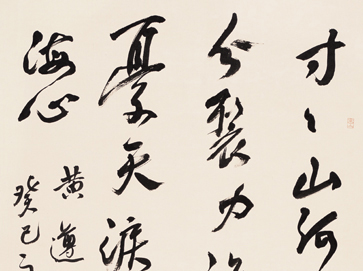 寸〻山河
分裂力
憂天淚
海心
黄遵
癸巳